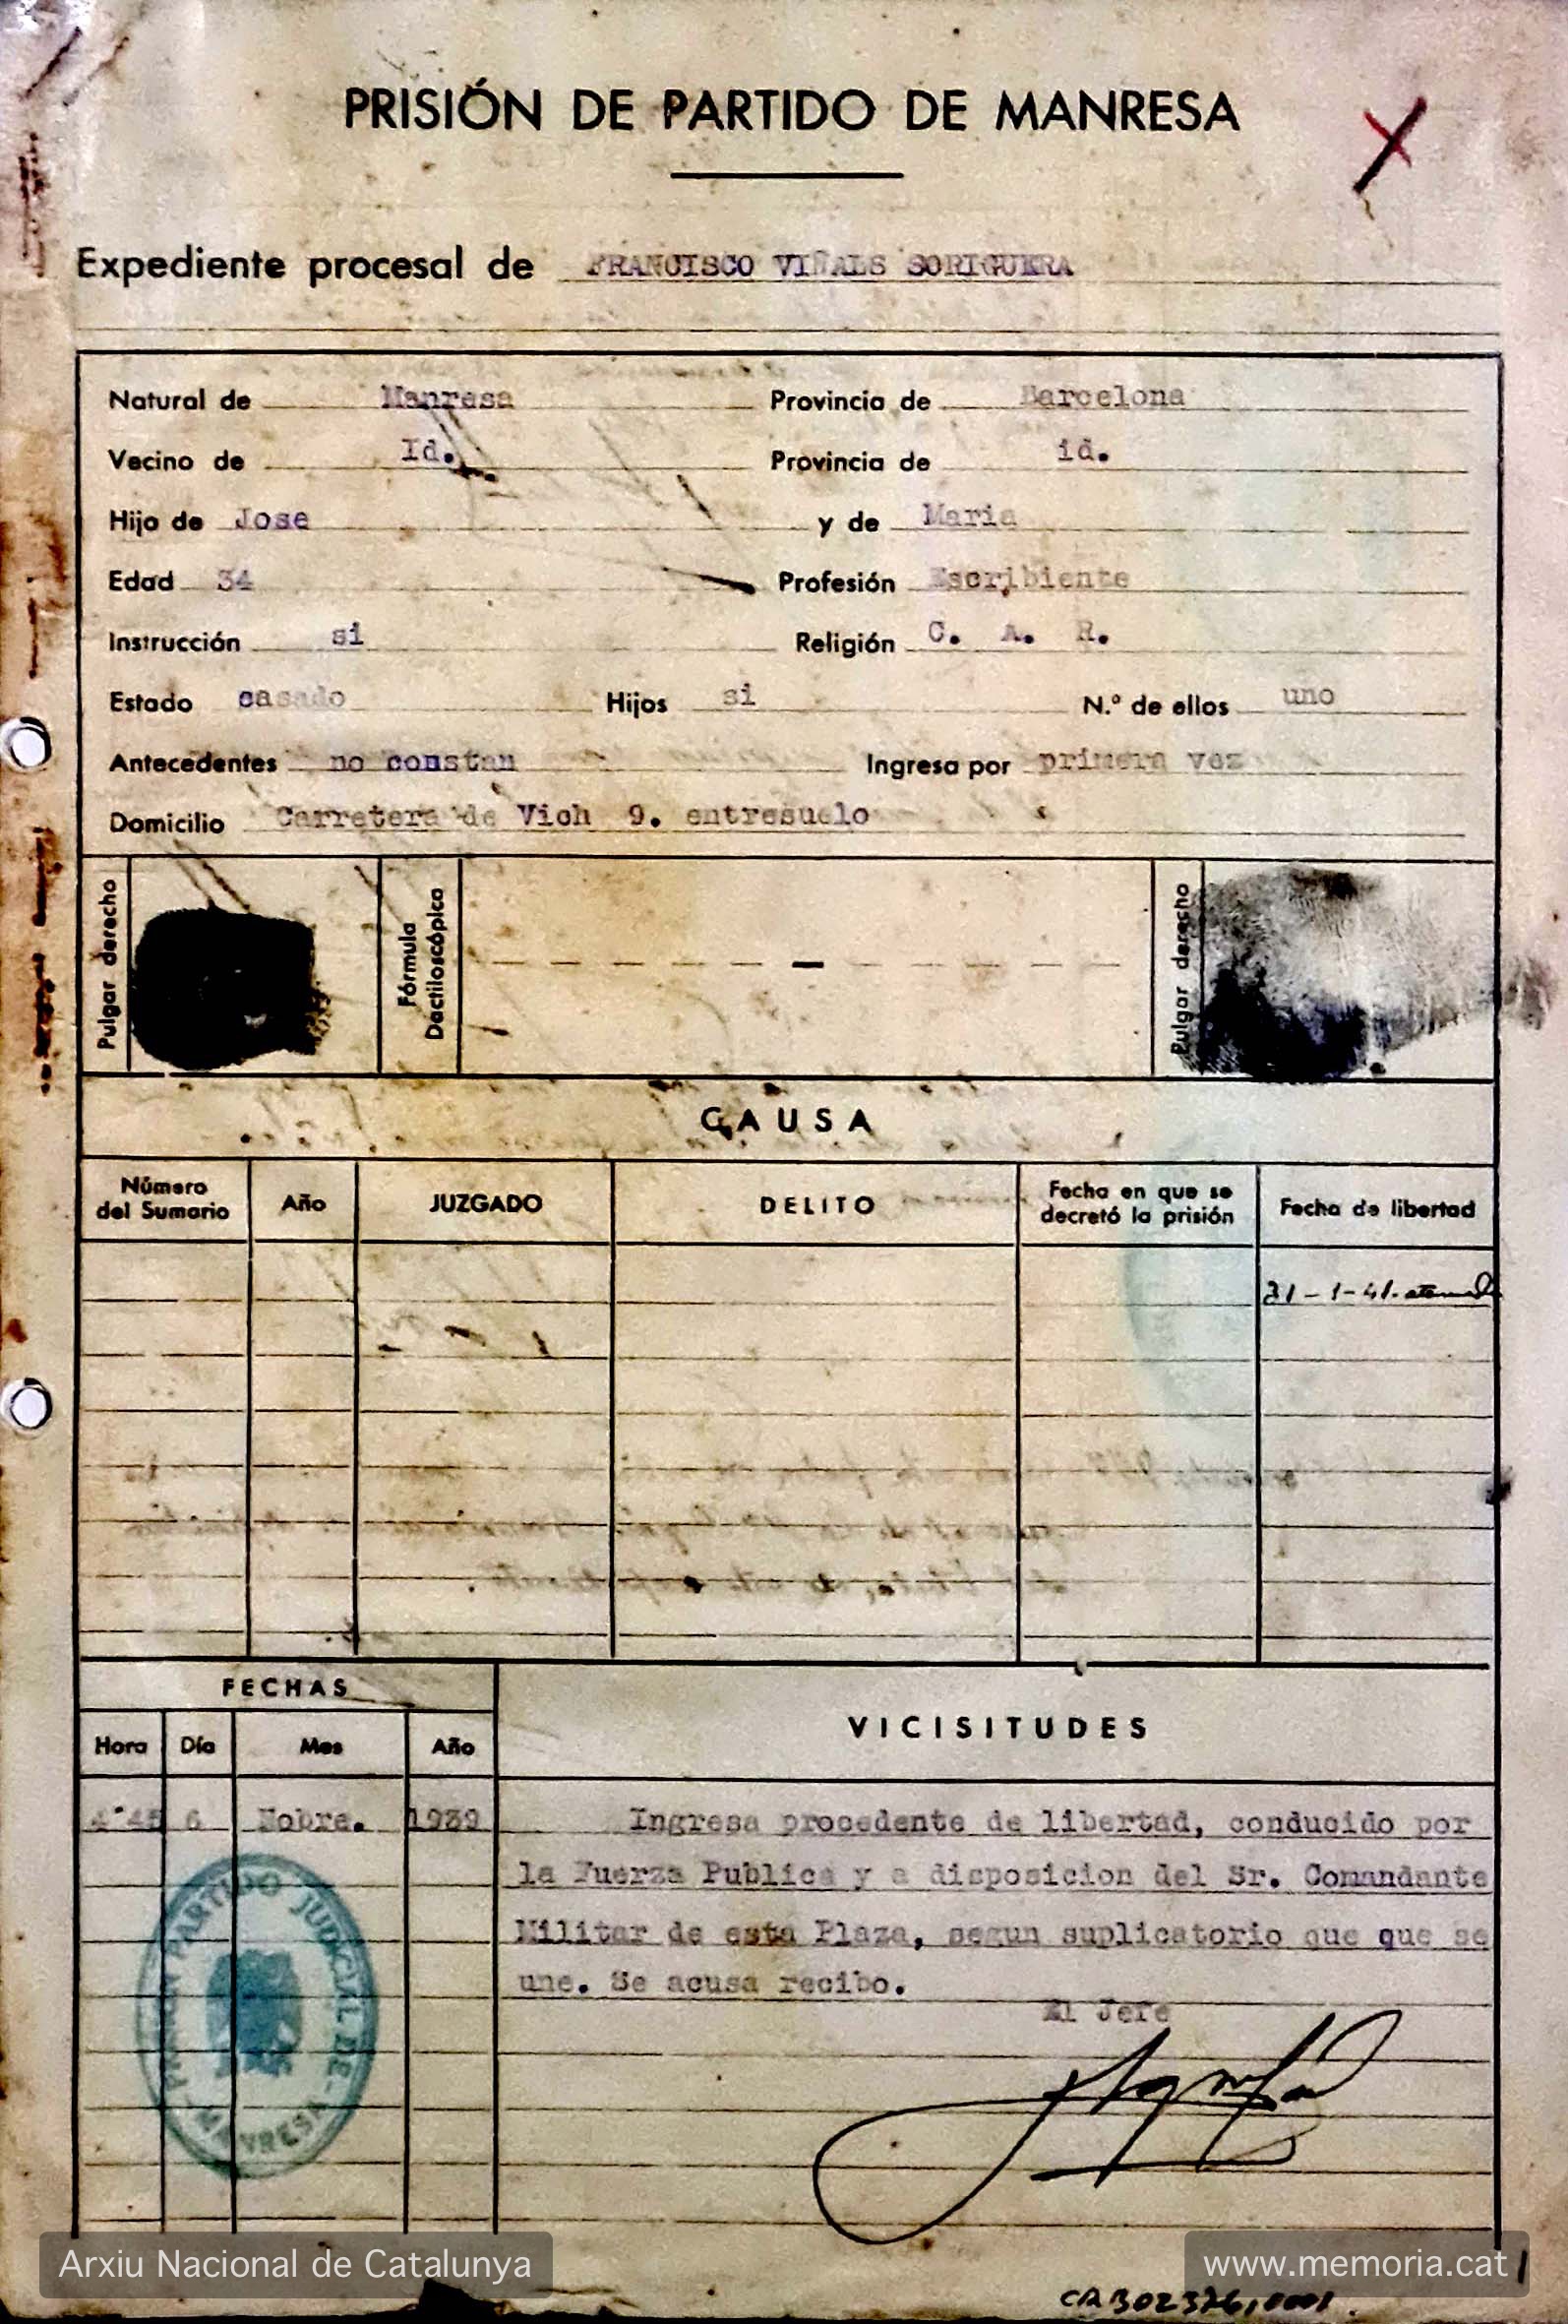 PRISIÓN DE PARTIDO DE MANRESA
Expediente procesal de FRANCISCO VIÑALS SORIGUERA
Natural de Manresa Provincia de Barcelona
Vecino de Id. Provincia de id.
Hijo de Jose y de Maria
Edad 34 Profesión Escribiente
Instrucción si Religión C. A. R.
Estado casado Hijos si N.º de ellos uno
Antecedentes no constan Ingresa por primera vez
Domicilio Carretera de Vich 9. entresuelo
Pulgar derecho
Fórmula Dactiloscópica
Pulgar derecho
CAUSA
Número del Sumario Año JUZGADO DELITO Fecha en que se decretó la prisión Fecha de libertad
31-1-41.
FECHAS
VICISITUDES
Hora Día Mes Año
4'45 6 Nobre. 1939 Ingresa procedente de libertad, conducido por
la Fuerza Publica y a disposicion del Sr. Comandante
Militar de esta Plaza, segun suplicatorio que que se
une. Se acusa recibo.
El Jefe
PRISIÓN PARTIDO JUDICIAL DE - MANRESA -
Arxiu Nacional de Catalunya
www.memoria.cat
1